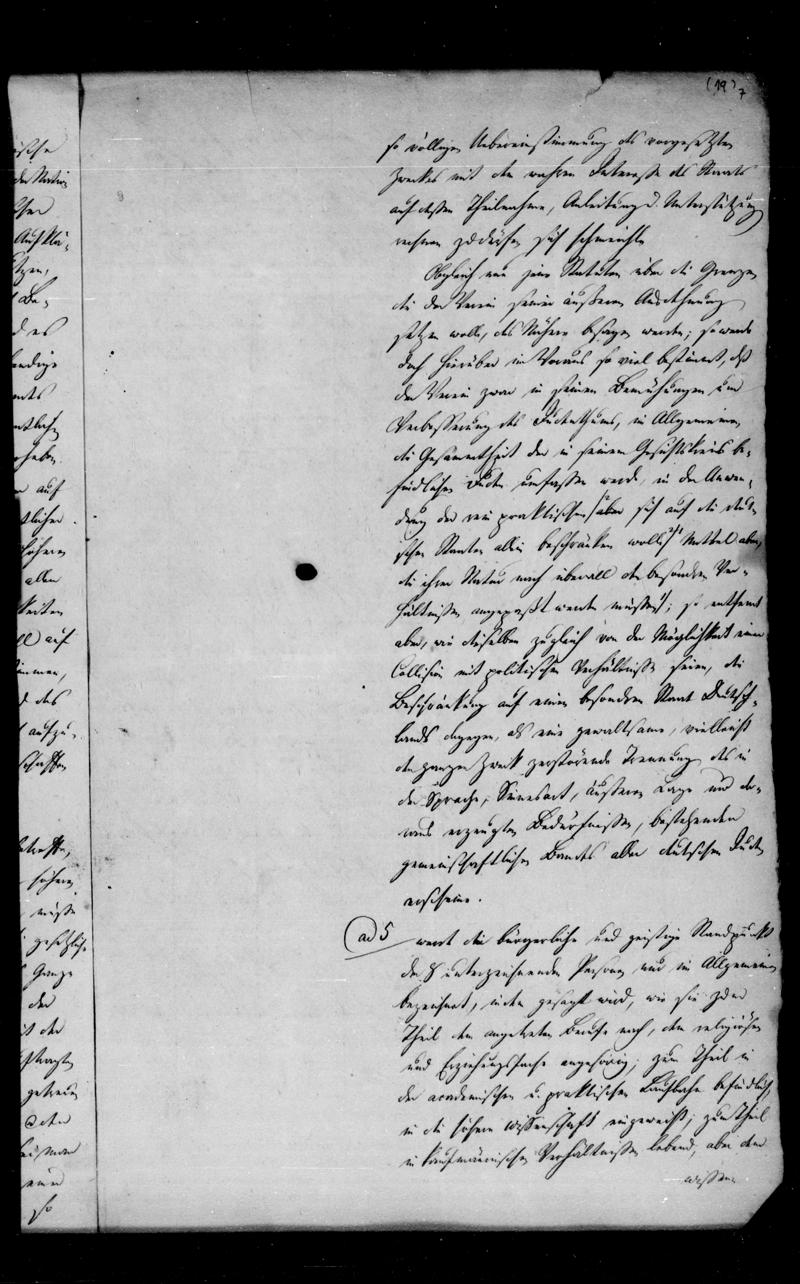 (19) 7
so völliger Uebereinstimmung des vorgesetzten
Zweckes mit dem wahren Interesse des Staats
auf dessen Theilnahme, Anleitung u. Unterstützung
rechnen zu dürfen sich schmeichle
Obgleich nun jene Statuten über die Grenzen
die der Verein seiner äußeren Ausdehnung
setzen wolle, das Nähere besagen werden; so werde
doch hierüber im Voraus so viel bestimmt, daß
der Verein zwar in seinen Bemühungen um
Verbesserung des Judenthums, im Allgemeinen
die Gesammtheit der in seinem Gesichtskreis be-
findlichen Juden umfassen werde, in der Anwen-
dung der rein praktischen aber sich auf die deut-
schen Staaten allein beschränken wolle; Mittel aber,
die ihrer Natur nach überall den besonderen Ver-
hältnissen angepaßt werden müssen; so entfernt
aber, wie dieselben zugleich von der Möglichkeit einer
Collision mit politischen Verhältnissen seien, die
Beschränkung auf einen besondren Staat Deutsch-
lands dagegen, als eine gewaltsame, vielleicht
den ganzen Zweck zerstörende Trennung des in
der Sprache, Sinnesart, äußeren Lage und da-
raus erzeugten Bedürfnissen, bestehenden
gemeinschaftlichen Bandes aller deutschen Juden
erscheine.
ad 5 werd die bürgerliche und geistige Standpunkt
der 8 unterzeichnenden Personen nur im Allgemeinen
bezeichnet, indem gesagt wird, wie sie zum
Theil dem angetretenen Berufe nach, dem religiösen
und Erziehungsfache angehörig; zum Theil in
der academischen u. praktischen Laufbahn befindlich,
in die höhere Wissenschaft eingeweiht; zum Theil
in kaufmännischen Verhältnissen lebend, aber dem
wissen-